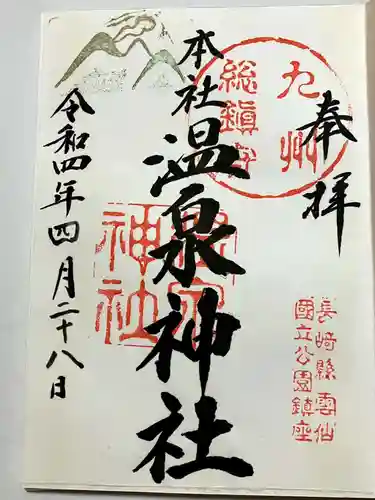 奉拝
九州
総鎮守
長崎縣雲仙
國立公園鎮座
本社
温泉神社
神社
令和四年四月二十八日